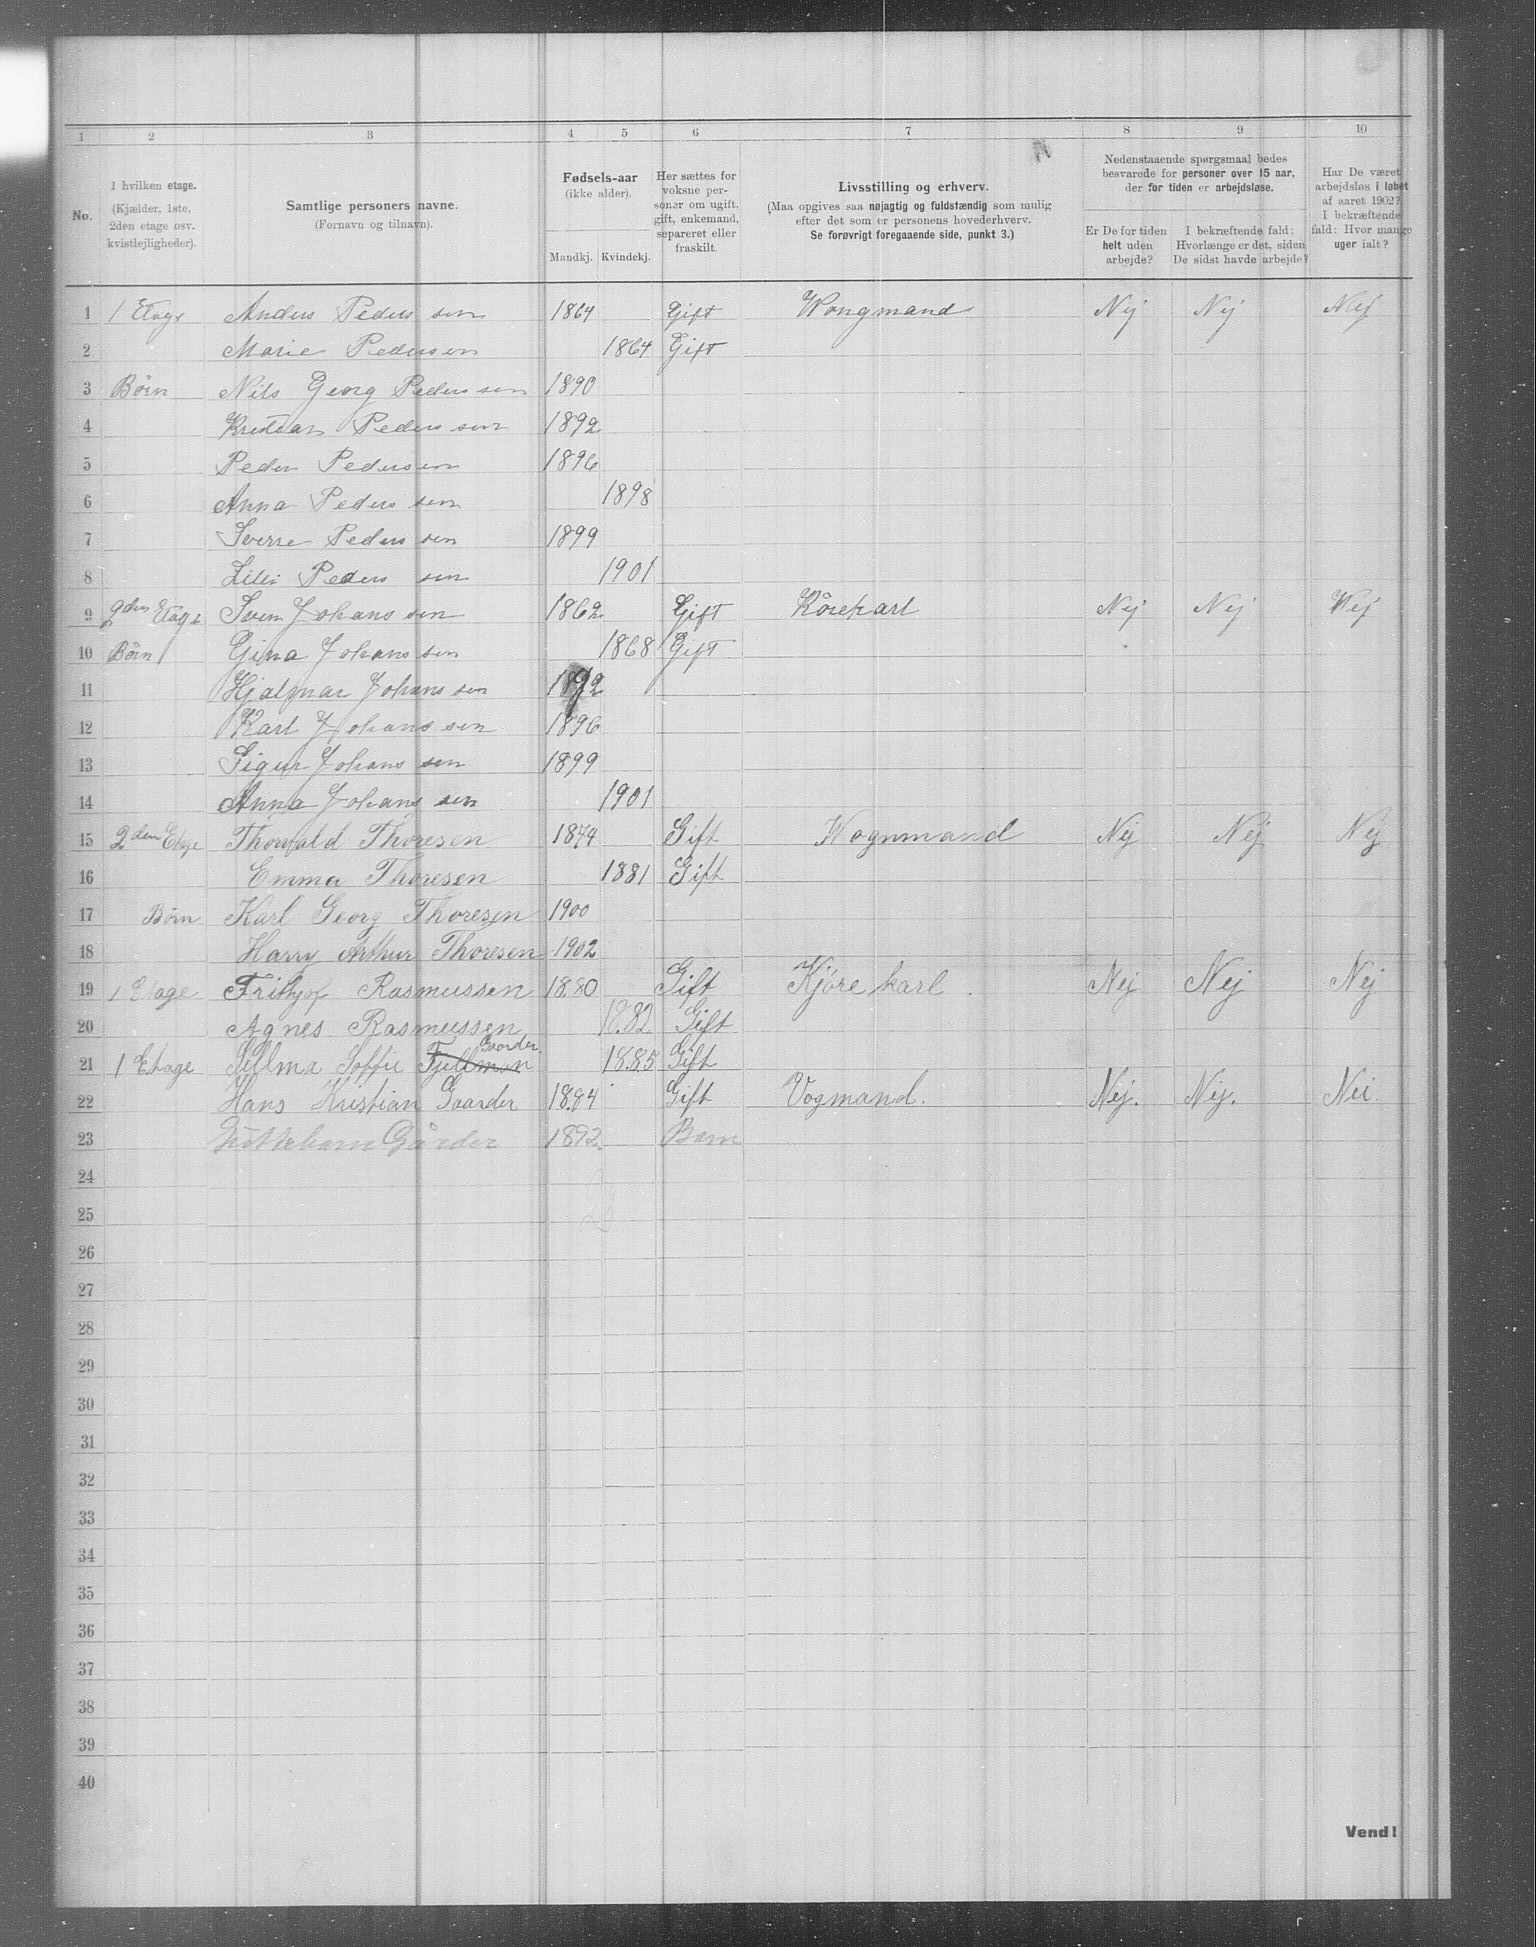 1 2 3 4 5 6 7 8 9 10
No.
I hvilken etage.
(Kjælder, 1ste,
2den etage osv.
kvistlejligheder).
Samtlige personers navne.
(Fornavn og tilnavn).
Fødsels-aar
(ikke alder).
Mandkj. Kvindekj.
Her sættes for
voksne per-
soner om ugift,
gift, enkemand,
separeret eller
fraskilt.
Livsstilling og erhverv.
(Maa opgives saa nøjagtig og fuldstændig som mulig
efter det som er personens hovederhverv.
Se forøvrigt foregaaende side, punkt 3.)
Nedenstaaende spørgsmaal bedes
besvarede for personer over 15 aar,
der for tiden er arbejdsløse.
Er De for tiden
helt uden
arbejde?
I bekræftende fald:
Hvorlænge er det, siden
De sidst havde arbejde?
Har De været
arbejdsløs i løbet
af aaret 1902?
I bekræftende
fald: Hvor mange
uger ialt?
1 1 Etage Anders Pederssen 1864 Gift Wongmand Nej Nej Nej
2 Marie Pedersen 1864 Gift
3 Børn Nils Georg Pederssen 1890
4 Kristian Pederssen 1892
5 Peder Pedersen 1896
6 Anna Pederssen 1898
7 Sverre Pederssen 1899
8 Lilli Pederssen 1901
9 2den Etage Sven Johanssen 1862 Gift Körekarl Nej Nej Nej
10 Börn Gina Johanssen 1868 Gift
11 Hjalmar Johanssen 1892
12 Karl Johanssen 1896
13 Sigur Johanssen 1899
14 Anna Johanssen 1901
15 2den Etage Thorvald Thoresen 1874 Gift Wognmand Nej Nej Nej
16 Emma Thoresen 1881 Gift
17 Børn Karl Georg Thoresen 1900
18 Harry Arthur Thoresen 1902
19 1 Etage Frithjof Rasmussen 1880 Gift Kjøre karl. Nej Nej Nej
20 Agnes Rasmussen 1882 Gift
Gaarder.
21 1 Etage Sellma Soffie Fjellman 1885 Gift
22 Hans Kristian Gaarder 1884 Gift Vogmand. Nej. Nej. Nei.
23 Guttebarn Gårder 1892. Barn
24
25
26
27
28
29
30
31
32
33
34
35
36
37
38
39
40
Vend!